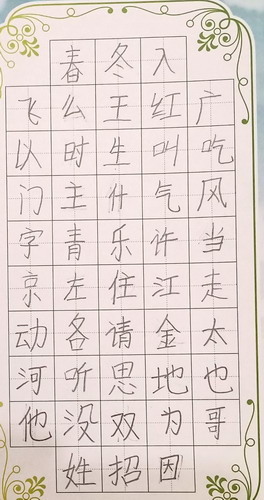 春冬入
飞么王红广
以时生叫吃
门主什气风
字青乐许当
京左住江走
动各请金太
河听思地也
他没双为哥
姓招因